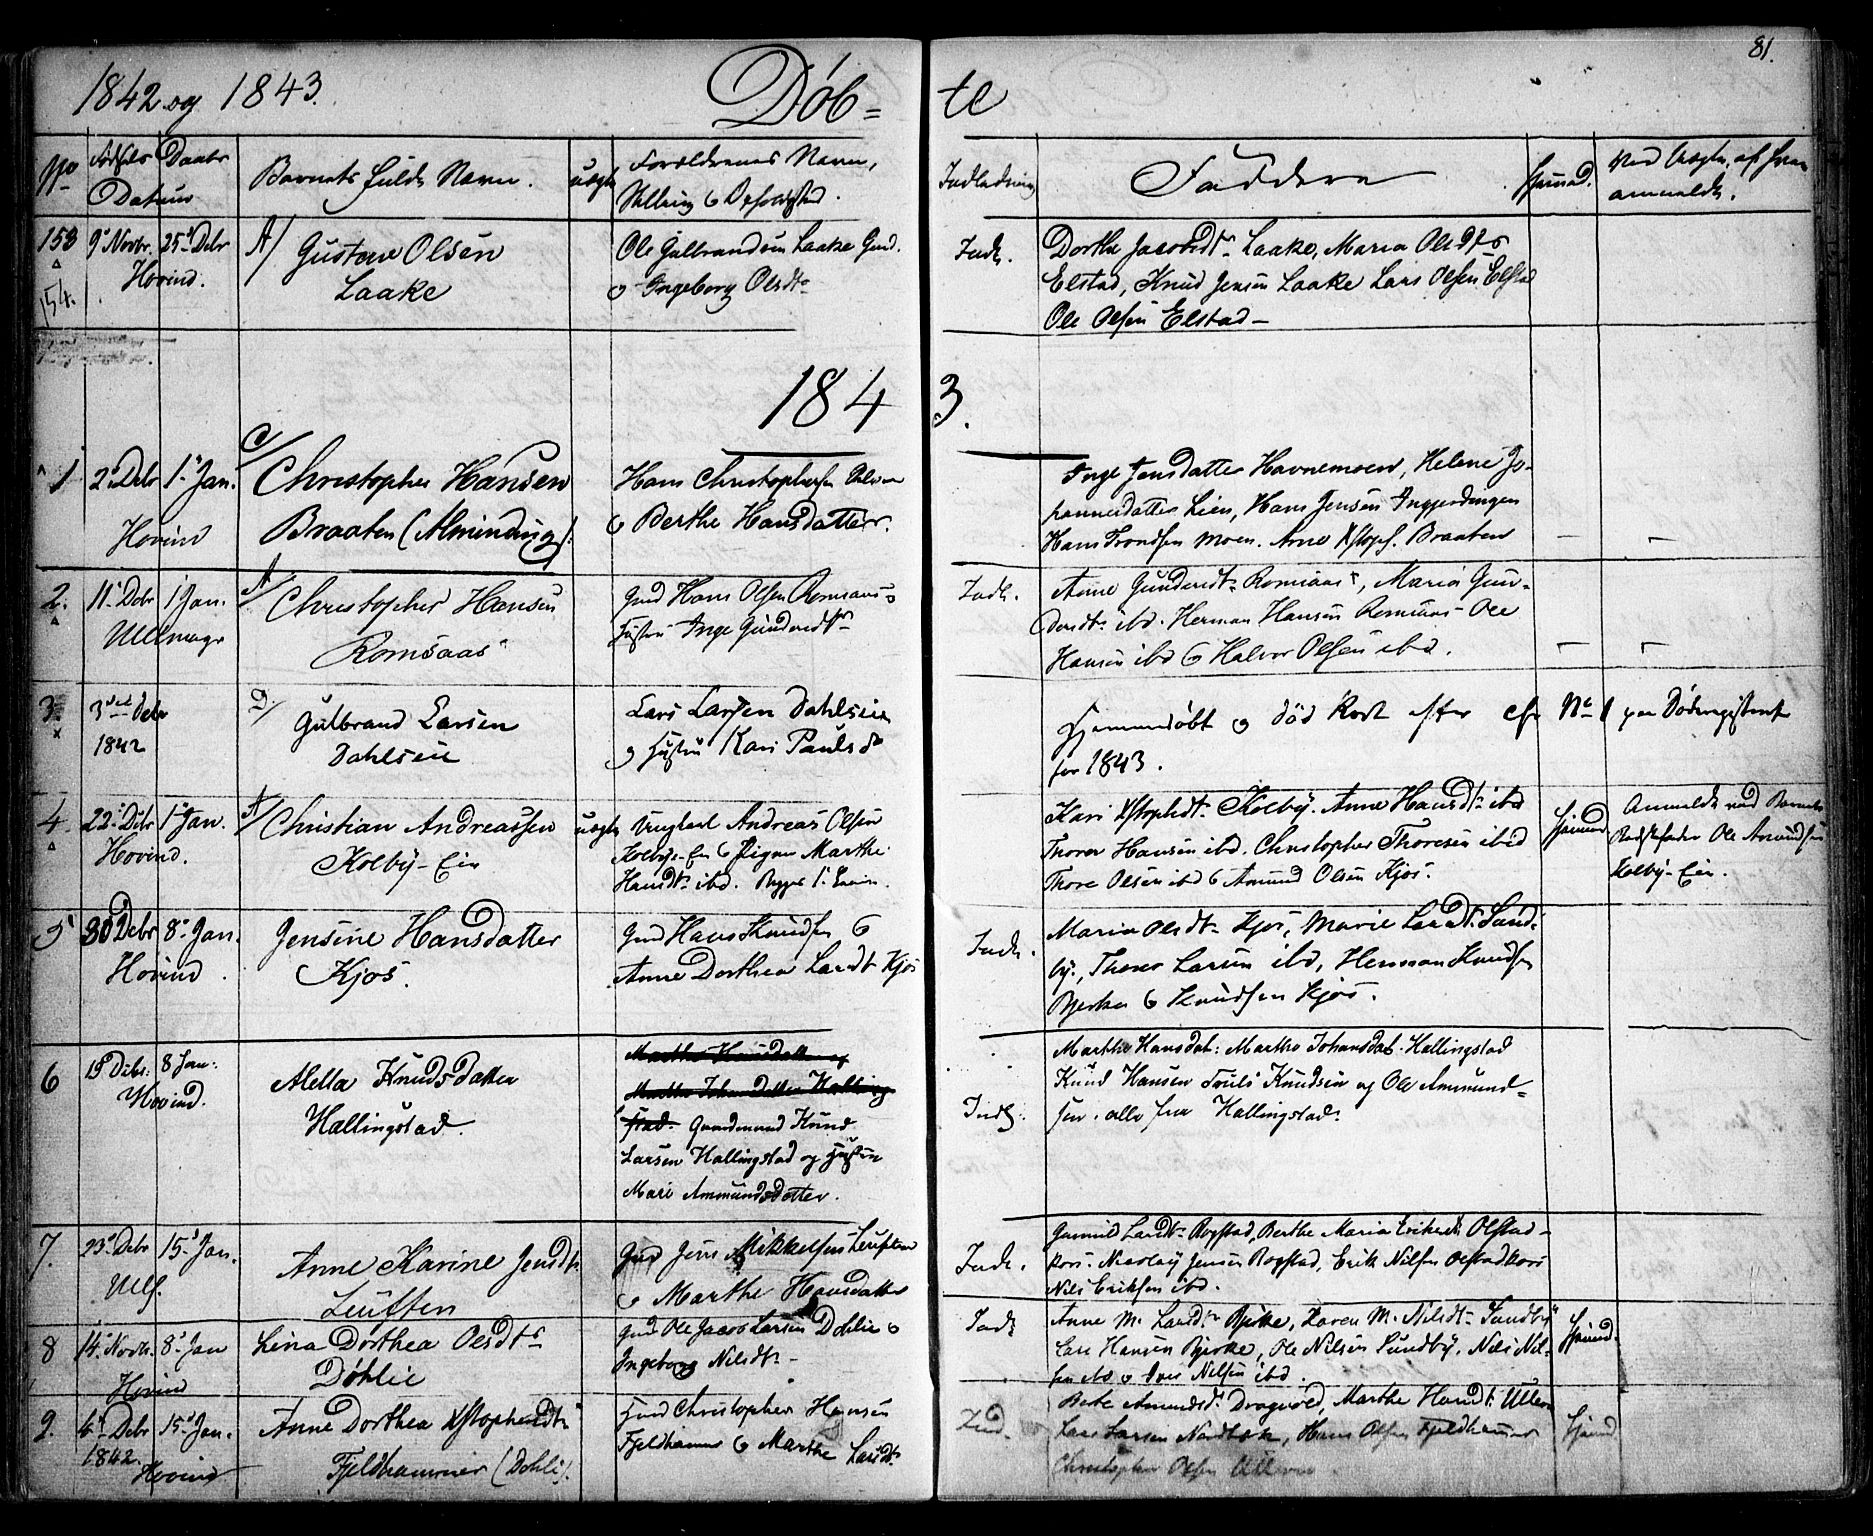 81.
1842 og 1843.
Døb= te
No
Fødsels Daabs
Datum
Barnets fulde Navn.
uægte
Forældrenes Navn,
Stilling
Indledning
Faddere
Hjemmed.
anmeldt.
153
154.
9' Novbr. 25' Debr
Hovind.
A/ Gustave Olsen
Laake
Ole Gulbrandsen Laake Gmd.
o Ingeborg Olsdtr
Indl.
Dorthe Jacobsdtr Laake, Maria Olsdtr
Elstad, Knud Jensen Laake Lars Olsen Elstad
Ole Olsen Elstad –
184 3.
1 2' Debr 1' Jan.
Hovind
C/ Christopher Hansen
Braaten (Alminding).
Hans Christophersen
o Berthe Hansdatter.
Inge Jensdatter Havnemoen, Helene Jo-
hannesdatter Lien, Hans Jensen
Hans Trondsen Moen. Arne Xstophs. Braaten
2. 11' Debr 1' Jan.
Ullensager
A/ Christopher Hansen
Romsaas
Gmd Hans Olsen Romsaas o
Hustru Inge Gundersdtr
Indl.
Anne Gundersdtr Romsaas, Maria Gun-
dersdtr ibd. Herman Hansen Romsaas Ole
Hansen ibd o Halvor Olsen ibd.
3. 3die Debr
1842
D/ Gulbrand Larsen
Dahlseie
Lars Larsen Dahlseie
o Hustru Kari Paulsdr
Hjemmedøbt o død kort efter cfr No 1 paa Dødsregisteret
for 1843.
4 22' Debr 1' Jan.
Hovind.
A/ Christian Andreassen
Kolby-Eie
uægte
Ungkarl Andreas Olsen
Kolby-Eie o Pigen Marthe
Hansdtr ibd. Begges 1'
Kari Xstophdtr Kolby. Anne Hansdtr ibd
Thorer Hansen ibd. Christopher Thoresen ibid
Thore Olsen ibd o Amund Olsen Kjos.
Hjemmed
Anmeldt ved Barnets
Ole Amundsen
Kolby-Eie.
5 30 Debr 8' Jan.
Hovind.
Jensine Hansdatter
Kjos.
Gmd Hans Knudsen o
Anne Dorthea Larsdtr Kjos
Indl.
Maria Olsdtr Kjos, Marie Larsdtr Sund-
by, Thorer Larsen ibd, Herman Knudsen
Bjerke o Knudsen Kjos.
6 19 Debr. 8 Jan.
Hovind.
Alette Knudsdatter
Hallingstad.
Marthe Hansdatter og
Marthe Johansdatter Halling-
stad. Gaardmand Knud
Larsen Hallingstad og Hustru
Mari Ammundsdatter.
Indl.
Marthe Hansdat: Marthe Johansdat. Hallingstad
Knud Hansen Truls Knudsen og Ole Ammund-
sen. alle fra Hallingstad.
7. 23' Debr 15' Jan.
Ulls.
Anne Karine Jensdtr
Leuften
Gmd Jens Mikkelsen Leuften
o Marthe Hansdatter
Indl.
Gunnild Larsdtr Rogstad, Berthe Maria Eriksdtr Olstad-
kors. Nicolay Jensen Rogstad, Erik Nilsen Olstadkors
Nils Eriksen ibd.
8 14' Novbr. 8' Jan
Hovind
Lina Dorthea Olsdtr
Døhlie
Gmd Ole Jacob Larsen Døhlie o
Ingeborg Nilsdtr –
Indl
Anne M. Larsdtr Bjerke, Karen M. Nilsdtr Sundby
Lars Hansen Bjerke, Ole Nilsen Sundby, Nils Nil-
sen ibd o Iver Nilsen ibd.
Hjemmed.
9. 6' Debr 15' Jan.
1842. Hovind
Anne Dorthea Xstophersdtr
Fjeldhammer (Døhli).
Hmd Christopher Hansen
Fjeldhammer o Marthe Larsdtr.
Ind.
Berte Amundsd. Dragvold, Marthe Hansdt. Ullern
Lars Larsen Nordbok, Hans Olsen Fjeldhammer
Christopher Olsen Ullern
Hjemmed